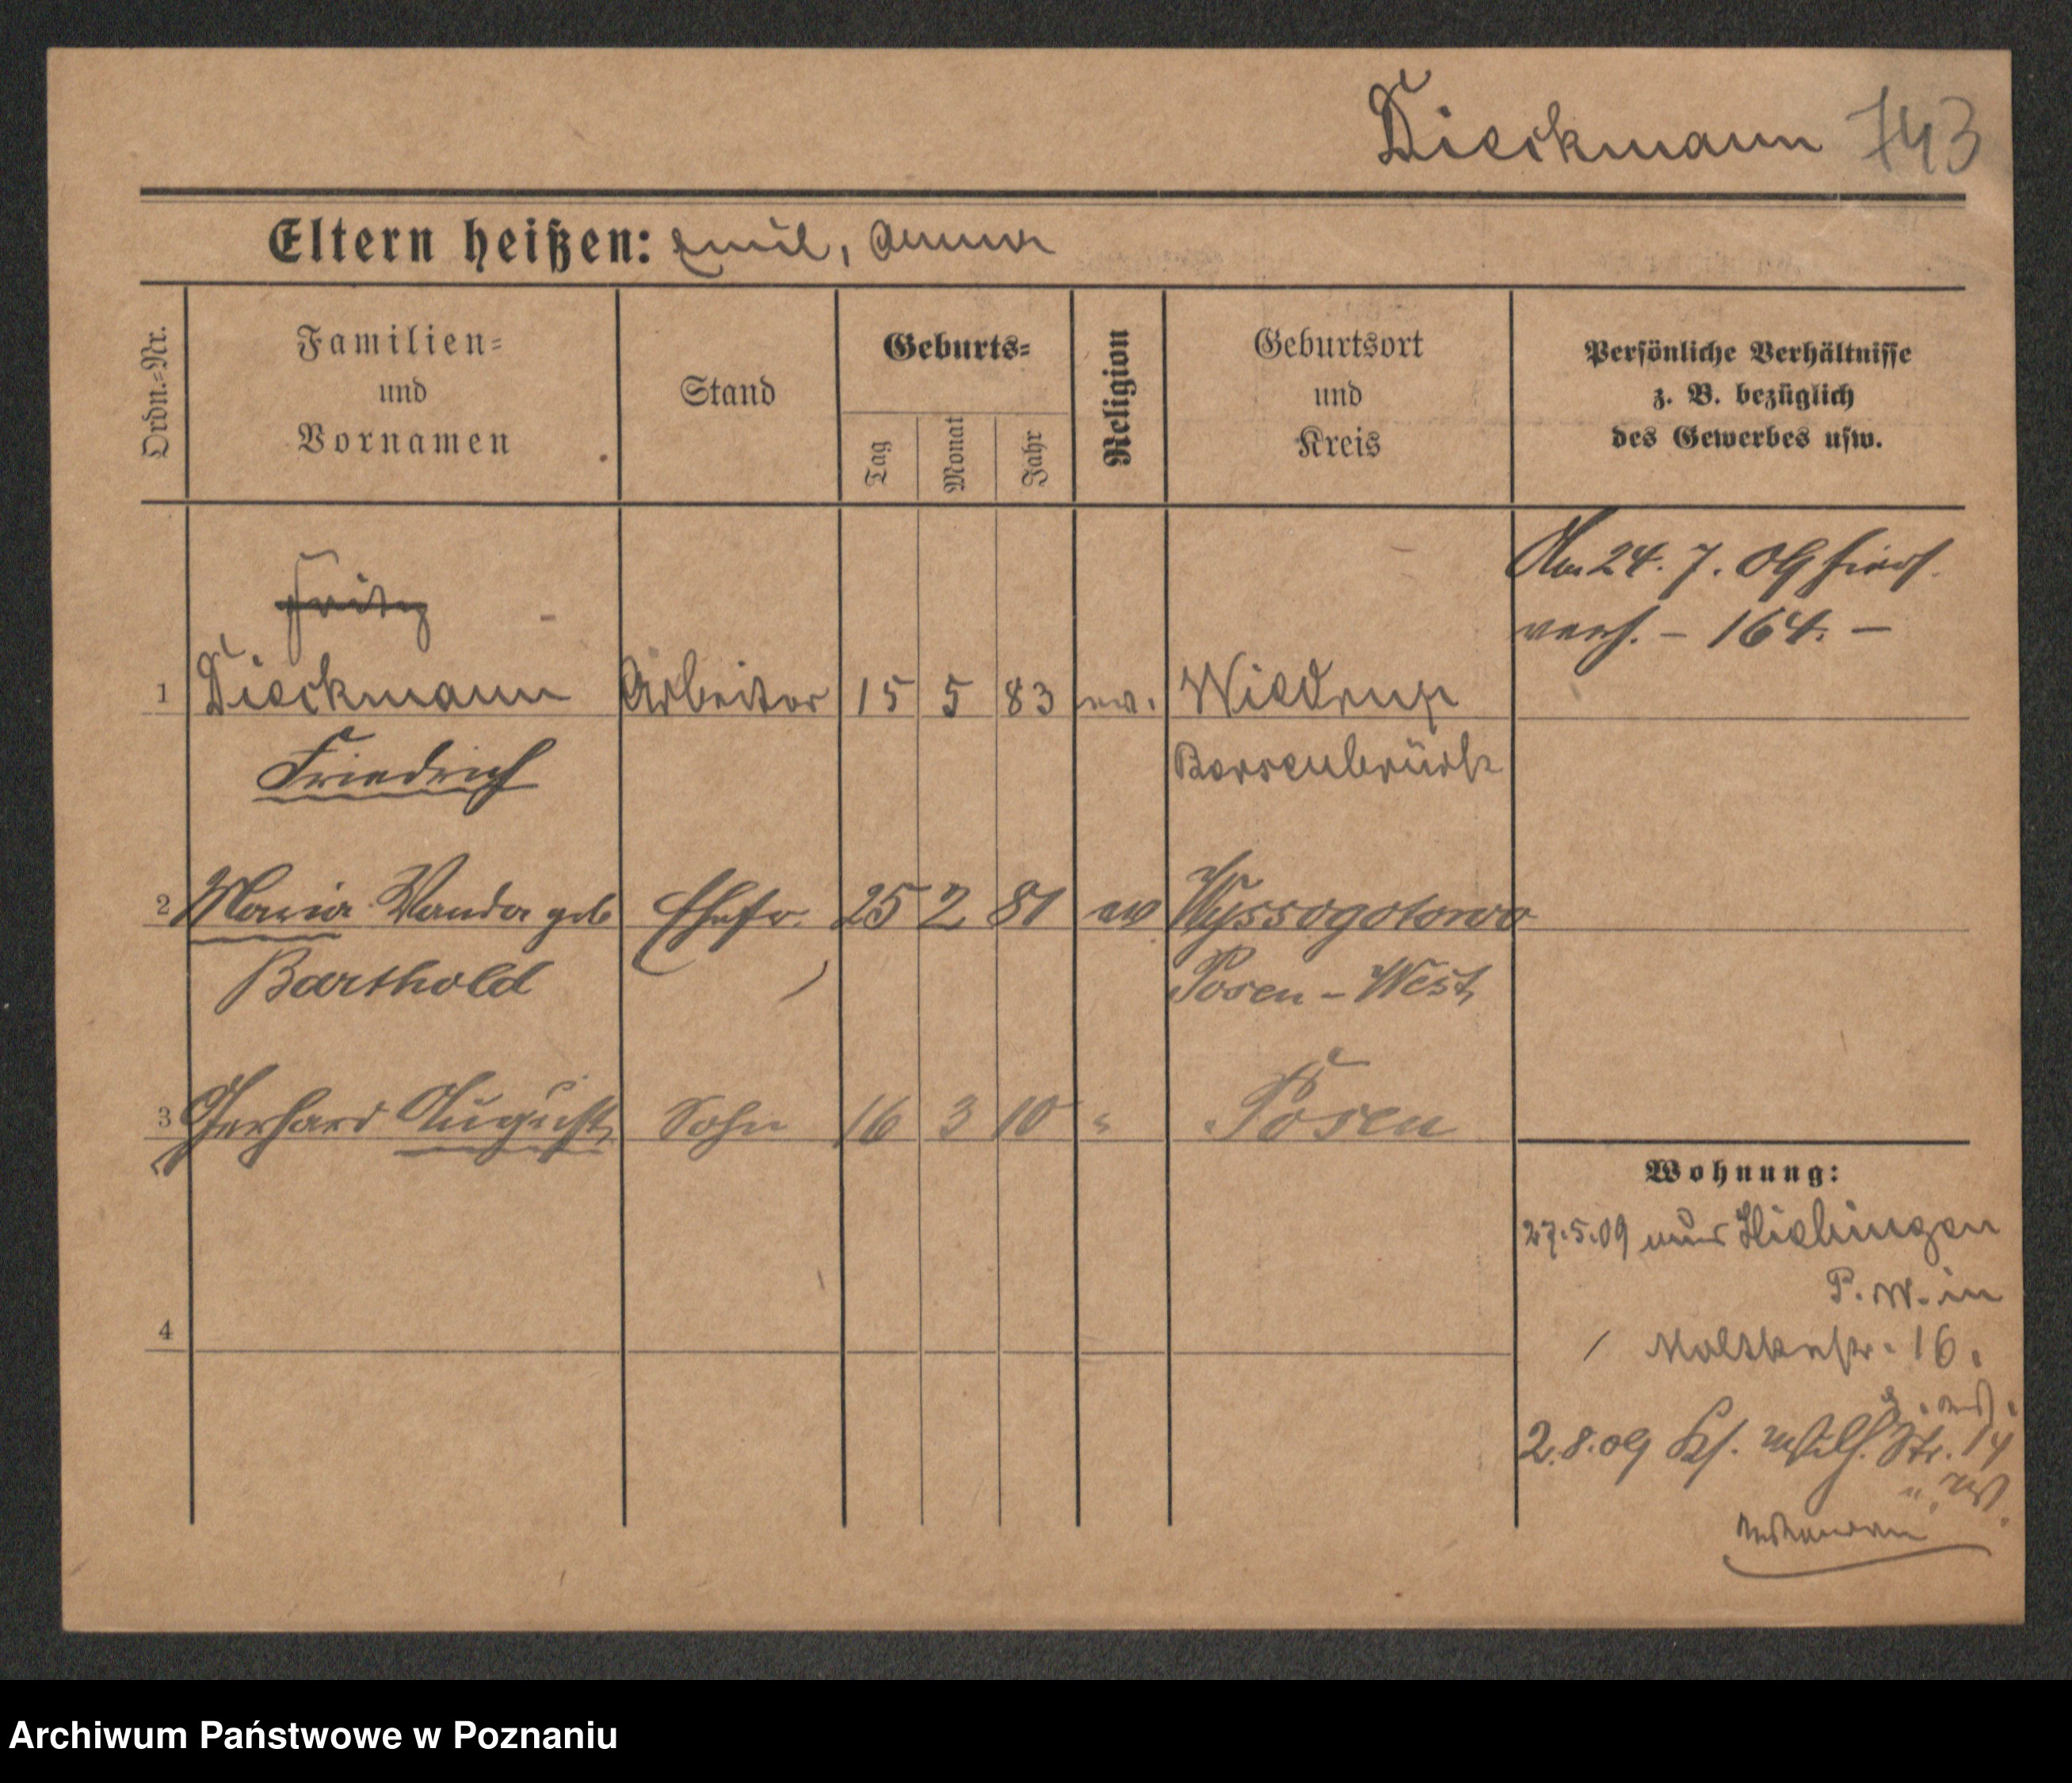 Dieckmann 743
Eltern heißen: Emil, Anna
Ordn.=Nr.
Familien=
und
Vornamen
Stand
Geburts=
Tag
Monat
Jahr
Religion
Geburtsort
und
Kreis
Persönliche Verhältnisse
z. B. bezüglich
des Gewerbes usw.
Am 24. 7. 09 hier
verh. – 164. –
Fritz
1 Dieckmann Arbeiter 15 5 83 ev. Wiedrup
Friedrich Bersenbrück
2 Maria Wanda geb Ehefr. 25 2 81 ev Wyssogotowo
Barthold Posen – West
3 Gerhard August Sohn 16 3 10 " Posen
Wohnung:
27.5.09 aus
P. W. in
Moltkestr. 16.
2.8.09 Str. 14
4
Archiwum Państwowe w Poznaniu